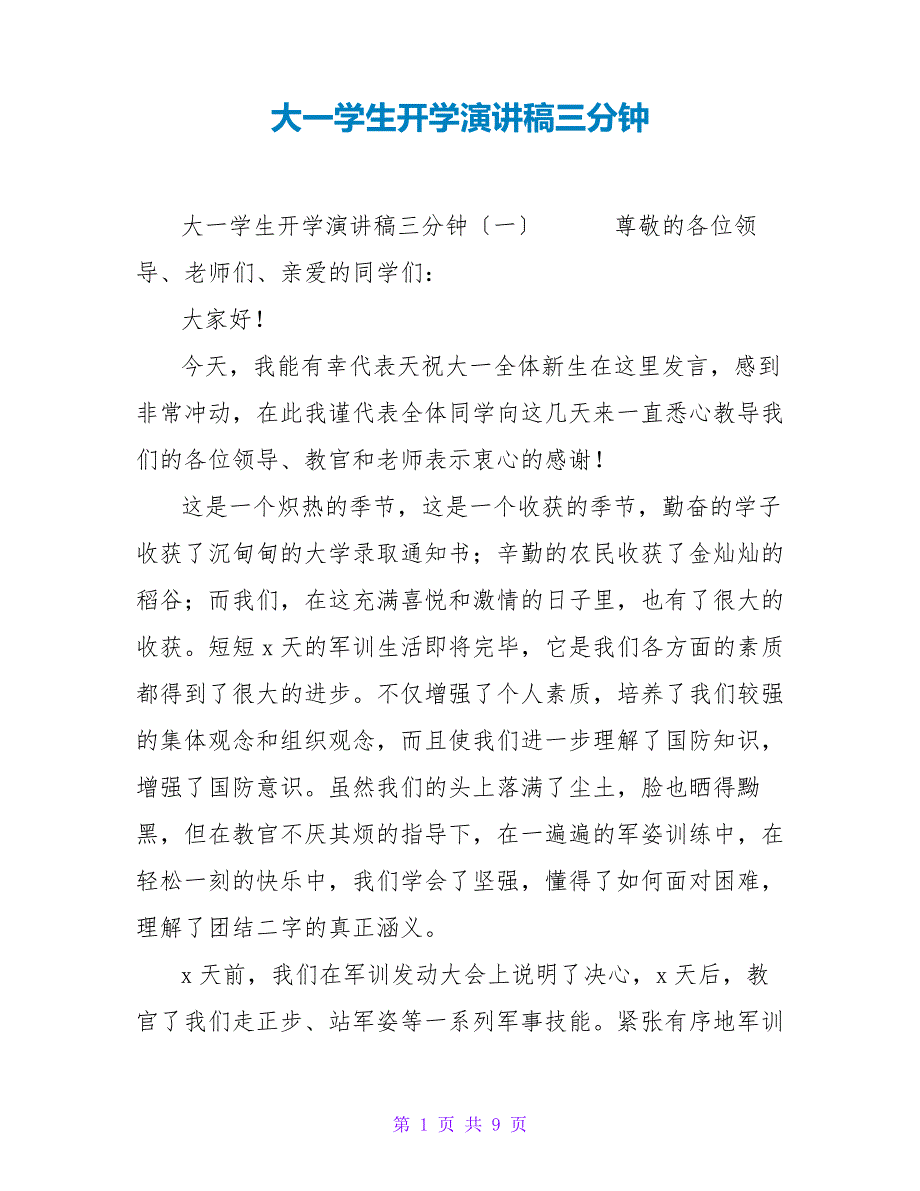 大一学生开学演讲稿三分钟
大一学生开学演讲稿三分钟〔一〕 尊敬的各位领
导、老师们、亲爱的同学们：
大家好！
今天，我能有幸代表天祝大一全体新生在这里发言，感到
非常冲动，在此我谨代表全体同学向这几天来一直悉心教导我
们的各位领导、教官和老师表示衷心的感谢！
这是一个炽热的季节，这是一个收获的季节，勤奋的学子
收获了沉甸甸的大学录取通知书；辛勤的农民收获了金灿灿的
稻谷；而我们，在这充满喜悦和激情的日子里，也有了很大的
收获。短短 x 天的军训生活即将完毕，它是我们各方面的素质
都得到了很大的进步。不仅增强了个人素质，培养了我们较强
的集体观念和组织观念，而且使我们进一步理解了国防知识，
增强了国防意识。虽然我们的头上落满了尘土，脸也晒得黝
黑，但在教官不厌其烦的指导下，在一遍遍的军姿训练中，在
轻松一刻的快乐中，我们学会了坚强，懂得了如何面对困难，
理解了团结二字的真正涵义。
x 天前，我们在军训发动大会上说明了决心，x 天后，教
官了我们走正步、站军姿等一系列军事技能。紧张有序地军训
第 1 页 共 9 页